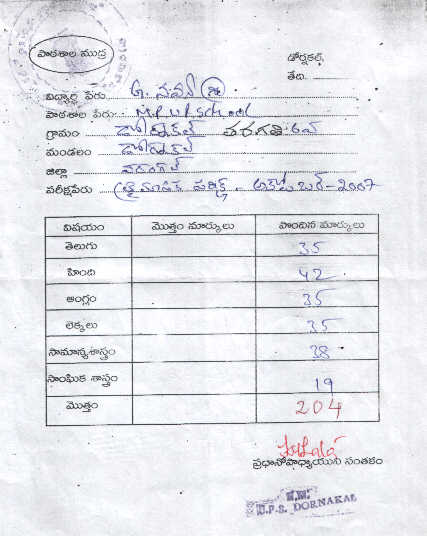 పాఠశాల ముద్ర
డోర్నకల్,
తేది.
విద్యార్థి పేరు. G. నవీన్
పాఠశాల పేరు. M.P.U.P. School
గ్రామం డోర్నకల్ తరగతి: 6వ
మండలం డోర్నకల్
జిల్లా వరంగల్
పరీక్షపేరు త్రైమాసిక పరీక్ష - అక్టోబర్-2007
విషయం మొత్తం మార్కులు పొందిన మార్కులు
తెలుగు 35
హింది 42
ఆంగ్లం 35
లెక్కలు 35
సామాన్యశాస్త్రం 38
సాంఘిక శాస్త్రం 19
మొత్తం 204
ప్రధానోపాధ్యాయుని సంతకం
H.M.
U.P.S. DORNAKAL